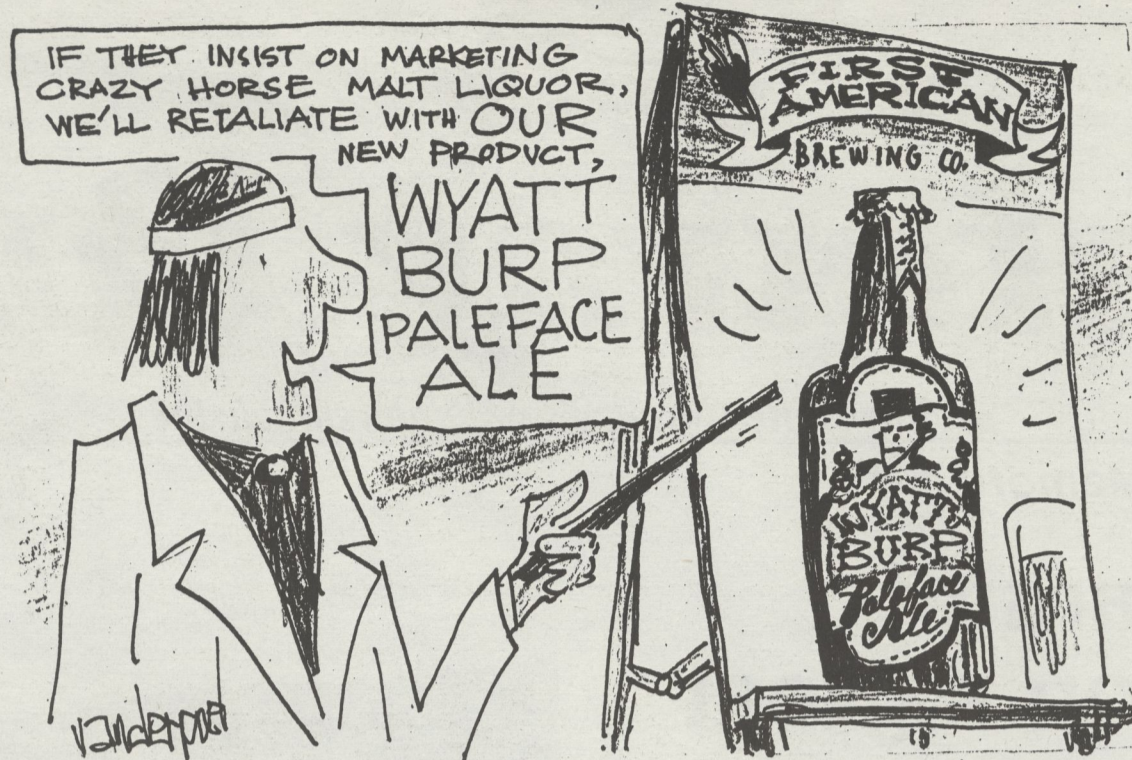 IF THEY INSIST ON MARKETING
CRAZY HORSE MALT LIQUOR,
WE'LL RETALIATE WITH OUR
NEW PRODUCT,
WYATT
BURP
PALEFACE
ALE
FIRST
AMERICAN
BREWING CO.
WYATT
BURP
Paleface
Ale
vanderpool